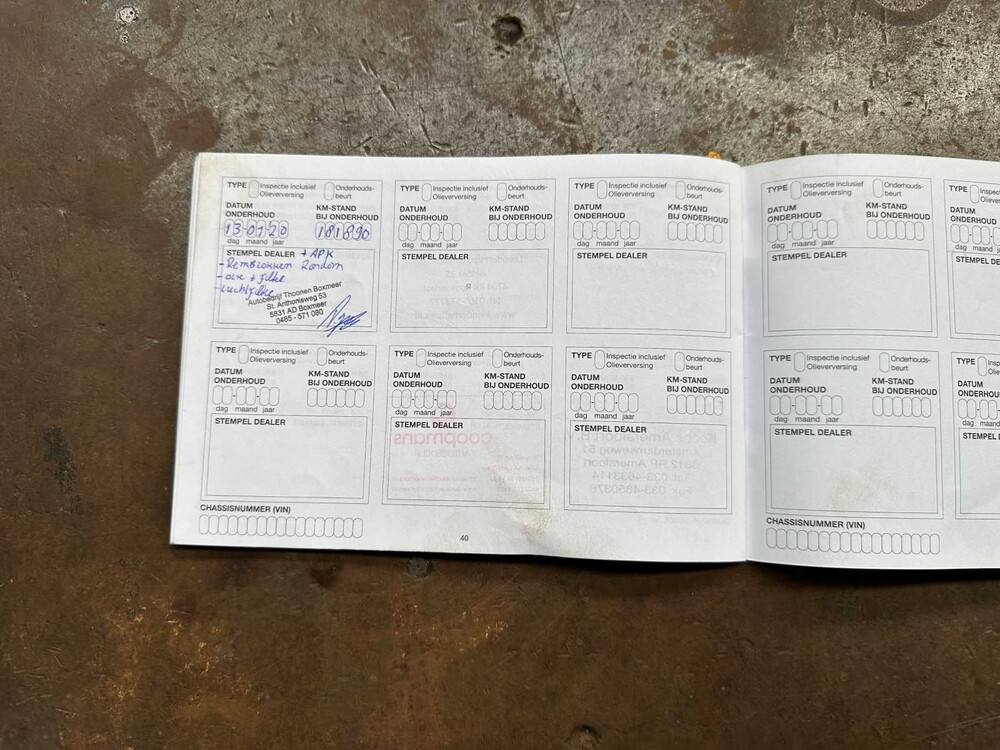 TYPE Inspectie inclusief Olieverversing Onderhouds-beurt
DATUM ONDERHOUD KM-STAND BIJ ONDERHOUD
13-01-20 181890
dag maand jaar
STEMPEL DEALER + APK
- Remblokken Rondom
- olie + filter
- luchtfilter
Autobedrijf Thoonen Boxmeer
St. Anthonisweg 53
5831 AD Boxmeer
0485 - 571 080
TYPE Inspectie inclusief Olieverversing Onderhouds-beurt
DATUM ONDERHOUD KM-STAND BIJ ONDERHOUD
dag maand jaar
STEMPEL DEALER
TYPE Inspectie inclusief Olieverversing Onderhouds-beurt
DATUM ONDERHOUD KM-STAND BIJ ONDERHOUD
dag maand jaar
STEMPEL DEALER
TYPE Inspectie inclusief Olieverversing Onderhouds-beurt
DATUM ONDERHOUD KM-STAND BIJ ONDERHOUD
dag maand jaar
STEMPEL DEALER
TYPE Inspectie inclusief Olieverversing Onderhouds-beurt
DATUM ONDERHOUD KM-STAND BIJ ONDERHOUD
dag maand jaar
STEMPEL DEALER
TYPE Inspectie inclusief Olieverversing Onderhouds-beurt
DATUM ONDERHOUD KM-STAND BIJ ONDERHOUD
dag maand jaar
STEMPEL DEALER
CHASSISNUMMER (VIN)
40
TYPE Inspectie inclusief Olieverversing Onderhouds-beurt
DATUM ONDERHOUD KM-STAND BIJ ONDERHOUD
dag maand jaar
STEMPEL DEALER
TYPE
DATUM ONDERHOUD
dag maand
STEMPEL D
TYPE Inspectie inclusief Olieverversing Onderhouds-beurt
DATUM ONDERHOUD KM-STAND BIJ ONDERHOUD
dag maand jaar
STEMPEL DEALER
TYPE
DATUM ONDERH
dag maand
STEMPEL D
CHASSISNUMMER (VIN)